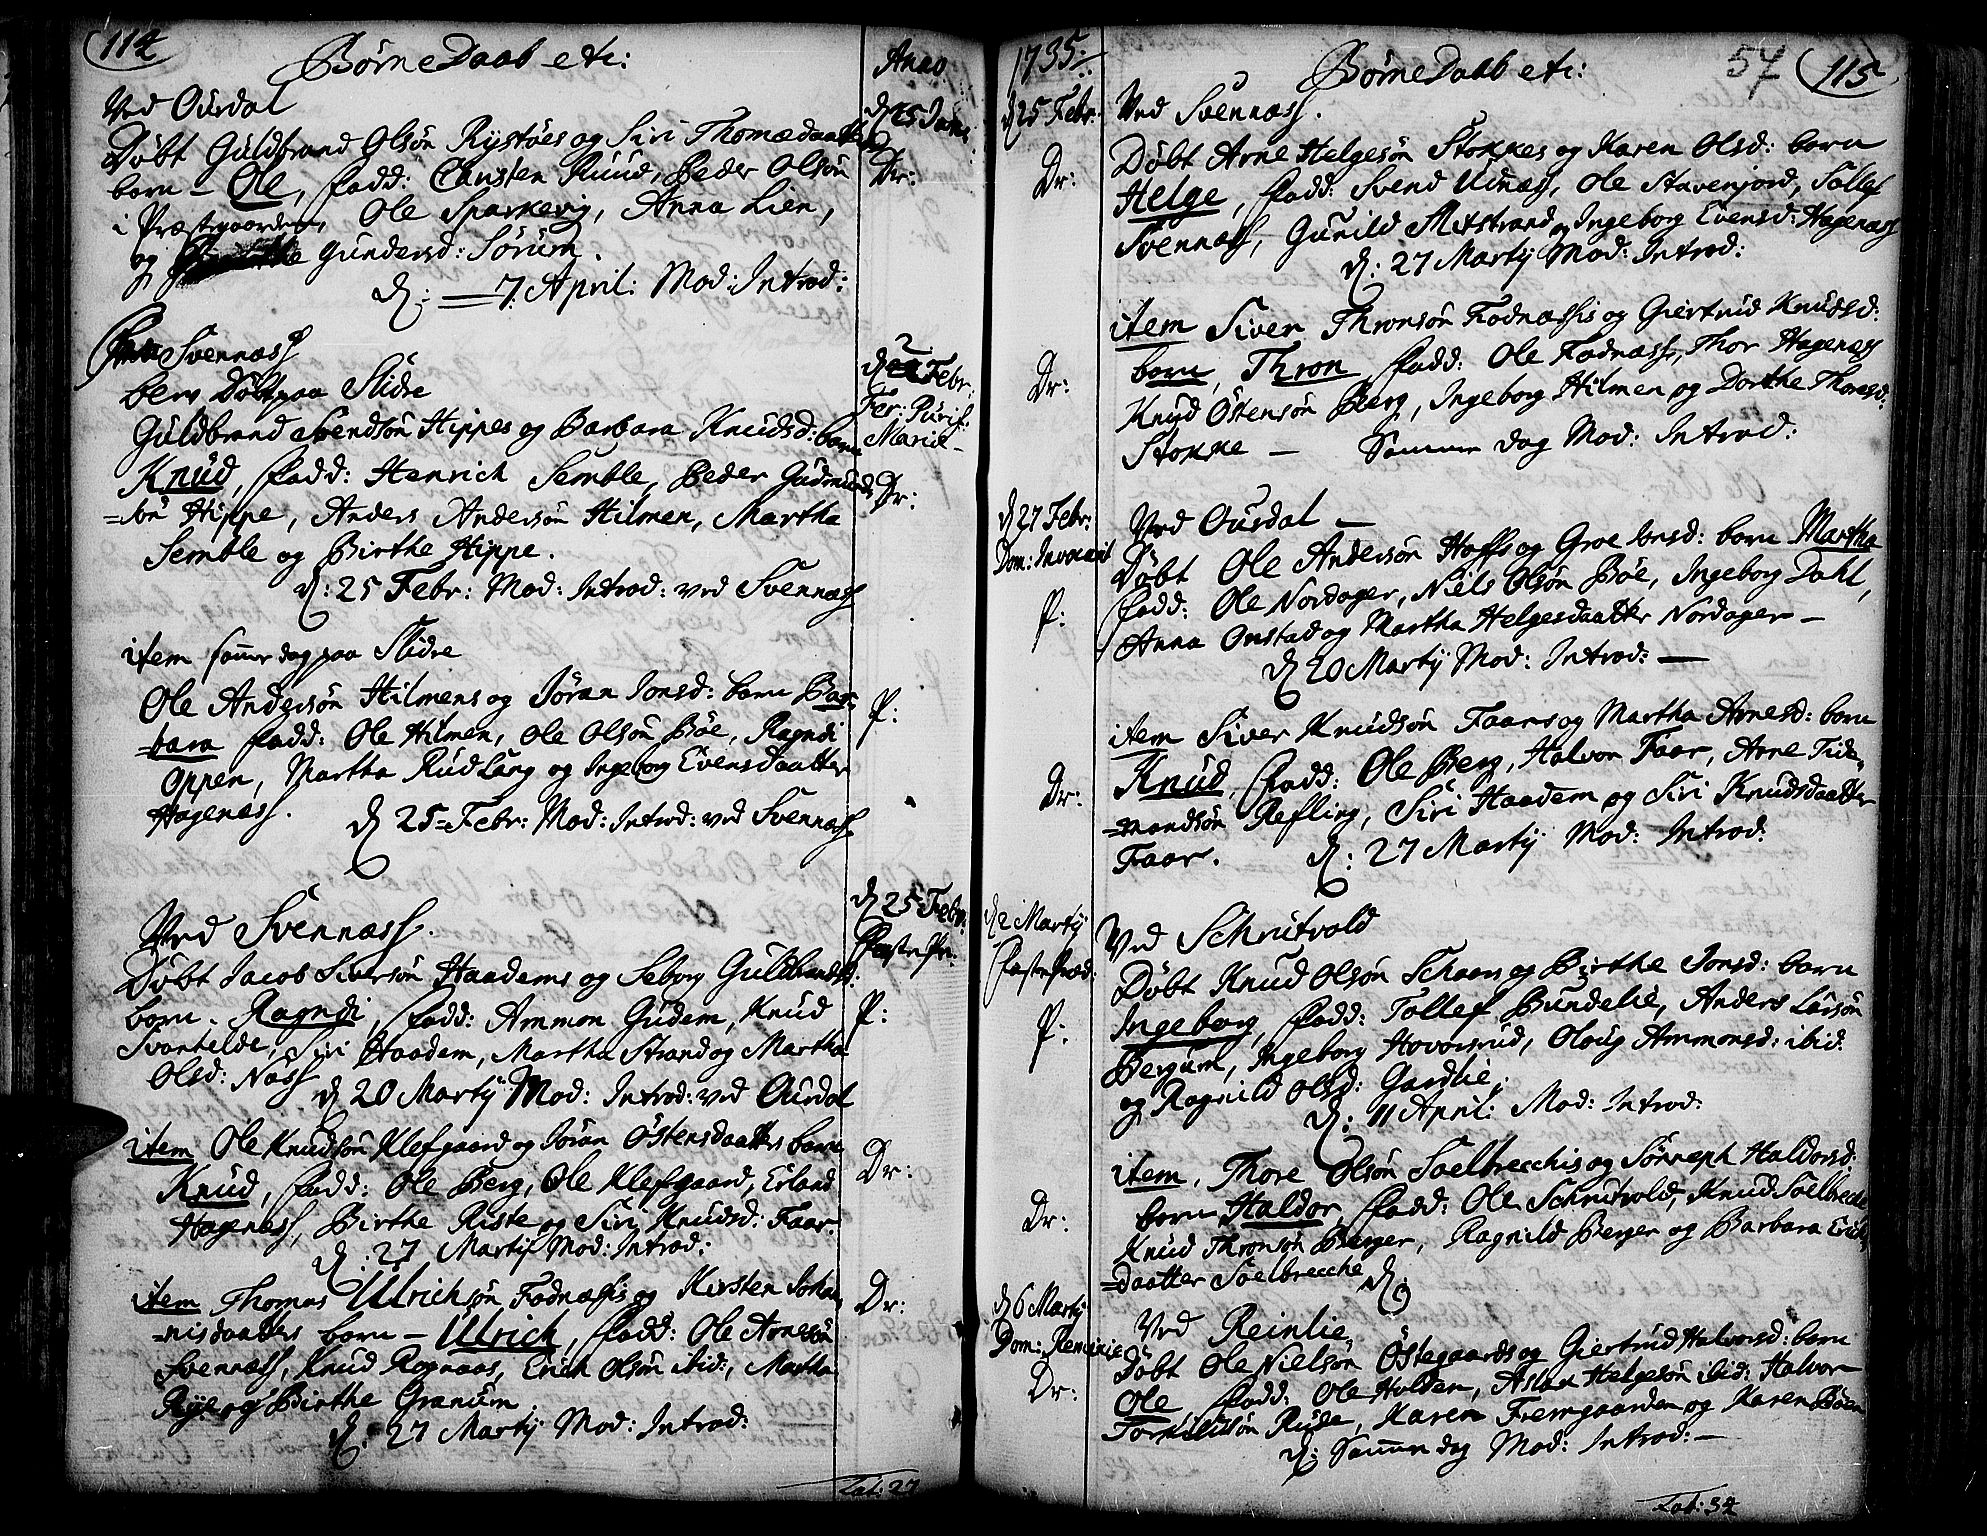 114
Børne Daab etc:
Anno
Ved Ourdal
d 25 Janu:
Døbt Guldbrand Olsøn Rystøes og Siri Thomædaatters
Dr:
born - Ole, fadd: Carsten Ruud, Peder Olsøn
i Præstegaarden, Ole Sparkevig, Anna Lien,
og Gundersd: Sørum.
d: 7 April: Mod: Introd:
Svennæss
d 2 Febr:
Fer: Purif:
Mariæ
blev Døbt paa Slidre
Guldbrand Svendsøn Hippes og Barbara Knudsd: born
Knud, fadd: Henrich Semble, Peder Gudmunds
Dr:
=søn Hippe, Anders Andersøn Hilmen, Martha
Semble og Birthe Hippe.
d: 25 Febr: Mod: Introd: ved Svennæss
item samme dag paa Slidre
Ole Andersøn Hilmens og Jøran Jonsd: born Bar-
P:
=bara fadd: Ole Hilmen, Ole Olsøn Bøe, Ragndi
Oppen, Martha Rudlang og Ingeborg Evensdaatter
Hagenæss.
d 25 Febr: Mod: Introd: ved Svennæss
d 25 Febr:
Fastepr:
Ved Svennæss.
Døbt Jacob Siversøn Haadems og Seborg Guldbrandsd:
P:
born - Ragndi, fadd: Ammon Gudem, Knud
Svanhelde, Siri Haadem, Martha Strand og Martha
Olsd: Næss
d 20 Martij Mod: Introd: ved Ourdal
item Ole Knudsøn Klefgaard og Jøran Østensdaatters born
Dr:
Knud, fadd: Ole Berg, Ole Klefgaard, Erland
Hagenæss, Birthe Riste og Siri Knudsd: Faar.
d: 27 Martij Mod: Introd:
item Thomas Ulrichsøn Fodnæssis og Kirsten Johan
Dr:
=nisdaatters born - Ulrich, fadd: Ole Arnesøn
Svennæss, Knud Rognaas, Erich Olsøn ibid:, Martha
Rye og Birthe Granum
d: 27 Martij Mod: Introd:
Lat: 27
1735:
Børne Daab etc:
57
115
d 25 Febr:
Ved Svennæss.
Døbt Arne Helgesøn Stokkes og Karen Olsd: born
Dr:
Helge, fadd: Svend Udnæss, Ole Stavenjord, Tollef
Svennæss, Gunild Mitstrand og Ingeborg Evensd: Hagenæss
d: 27 Martij Mod: Introd:
item Siver Thronsøn Fodnæssis og Giertrud Knudsd:
Dr:
born, Thron, fadd: Ole Fodnæss, Thor Hagenæss
Knud Østensøn Berg, Ingeborg Hilmen og Dorthe Thoresd:
Stokke - Samme dag Mod: Introd:
d 27 Febr:
Dom: Invocavit
Ved Ourdal -
Døbt Ole Andersøn Hoffs og Groe Jonsd: born Martha
P:
fadd: Ole Nordager, Niels Olsøn Bøe, Ingeborg Dahl,
Anna Onstad og Martha Helgesdaatter Nordager -
d 20 Martij Mod: Introd: -
item Siver Knudsøn Faars og Martha Arnesd: born
Dr:
Knud, fadd: Ole Berg, Halvor Faar, Arne Tide-
=mandsøn Refling, Siri Haadem og Siri Knudsdaatter
Faar. d: 27 Martij Mod: Introd:
d 2 Martij
Fastepræd:
Ved Schrutvold
Døbt Knud Olsøn Schaars og Birthe Jonsd: born
P:
Ingeborg, fadd: Tollef Bundelie, Anders Larsøn
Bergum, Ingeborg Hovarsrud, Oloug Ammonsd: ibid:
og Ragnild Olsd: Gardlie.
d: 11 April: Mod: Introd:
item, Thore Olsøn Soelbrecchis og Sønneph Haldorsd:
Dr:
born Haldor, fadd: Ole Schrutvold, Knud Soelbrecche
Knud Thronsøn Berger, Ragnild Berger og Barbara Erichs
=daatter Soelbrecche d:
d 6 Martij
Dom: Reminisc:
Ved Reinlie.
Døbt Ole Nielsøn Østegaards og Giertrud Halvorsd: born
Dr:
Ole, fadd: Ole Holden, Aslak Helgesøn ibid: Halvor
Torkildsøn Rude, Karen Fremgaarden og Karen Bøen
d: Samme dag Mod: Introd: -
Lat: 34